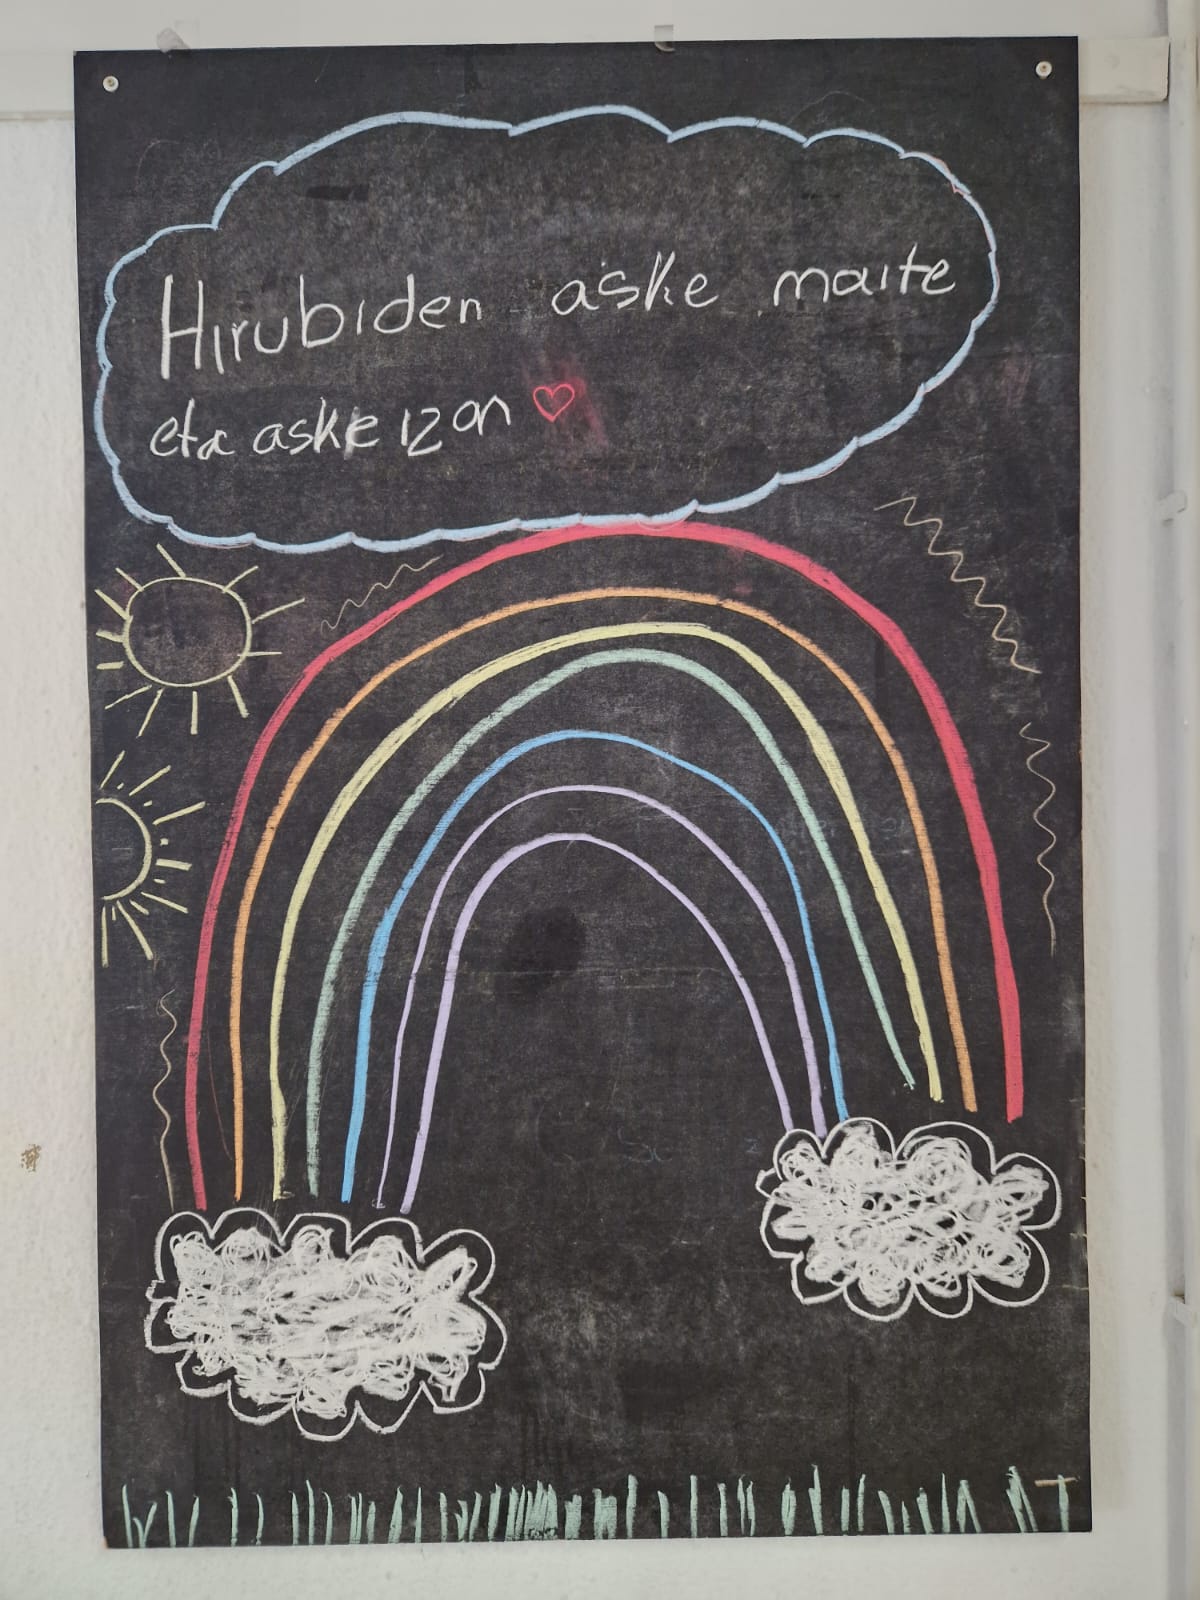 Hirubiden aske maite
eta aske izan